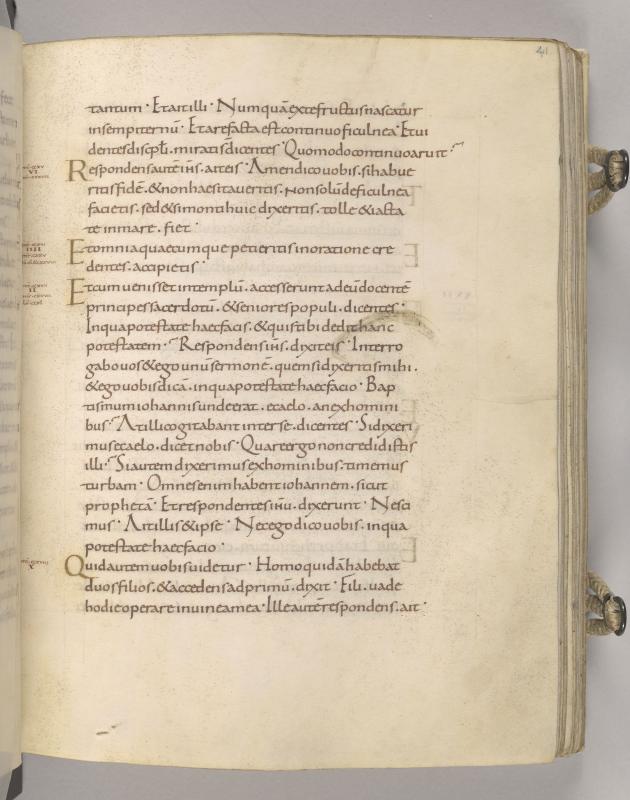 41
tantum · Et ait illi · Numquā ex te fructus nascatur
in sempiternū · Et arefacta est continuo ficulnea · Et ui
dentes discpłi. mirati s̄ dicentes · Quomodo continuo aruit
Respondens autē ih̄s. ait eis · Amen dico uobis. si habue
ritis fidē. & non haesitaueritis. non solū de ficulnea
facietis. sed & si monti huic dixeritis. tolle & iacta
te in mare. fiet ·
Et omnia quaecumque petieritis in oratione cre
dentes. accipietis ·
Et cum uenisset in templū. accesserunt ad eū docentē
principes sacerdotū. & seniores populi. dicentes ·
In qua potestate haec facis. & quis tibi dedit hanc
potestatem · Respondens ih̄s. dixit eis · Interro
gabo uos & ego unū sermonē. quem si dixeritis mihi.
& ego uobis dicā. in qua potestate haec facio · Bap
tismum iohannis unde erat. e caelo. an ex homini
bus · At illi cogitabant inter se. dicentes · Si dixeri
mus e caelo. dicet nobis · Quare ergo non credidistis
illi · Si autem dixerimus ex hominibus. timemus
turbam · Omnes enim habent iohannem. sicut
prophetā · Et respondentes ih̄u. dixerunt · Nesci
mus · Ait illis & ipse · Nec ego dico uobis. in qua
potestate haec facio ·
Quid autem uobis uidetur · Homo quidā habebat
duos filios. & accedens ad primū. dixit · Fili. uade
hodie operare in uinea mea · Ille autē respondens. ait ·